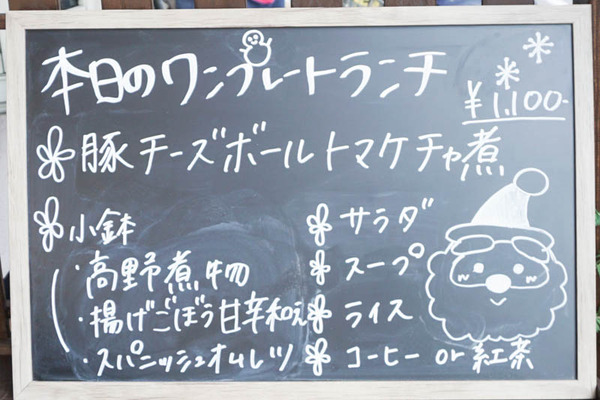 本日のワンプレートランチ
¥1,100-
豚チーズボールトマケチャ煮
小鉢
・高野煮物
・揚げごぼう甘辛和え
・スパニッシュオムレツ
サラダ
スープ
ライス
コーヒー or 紅茶